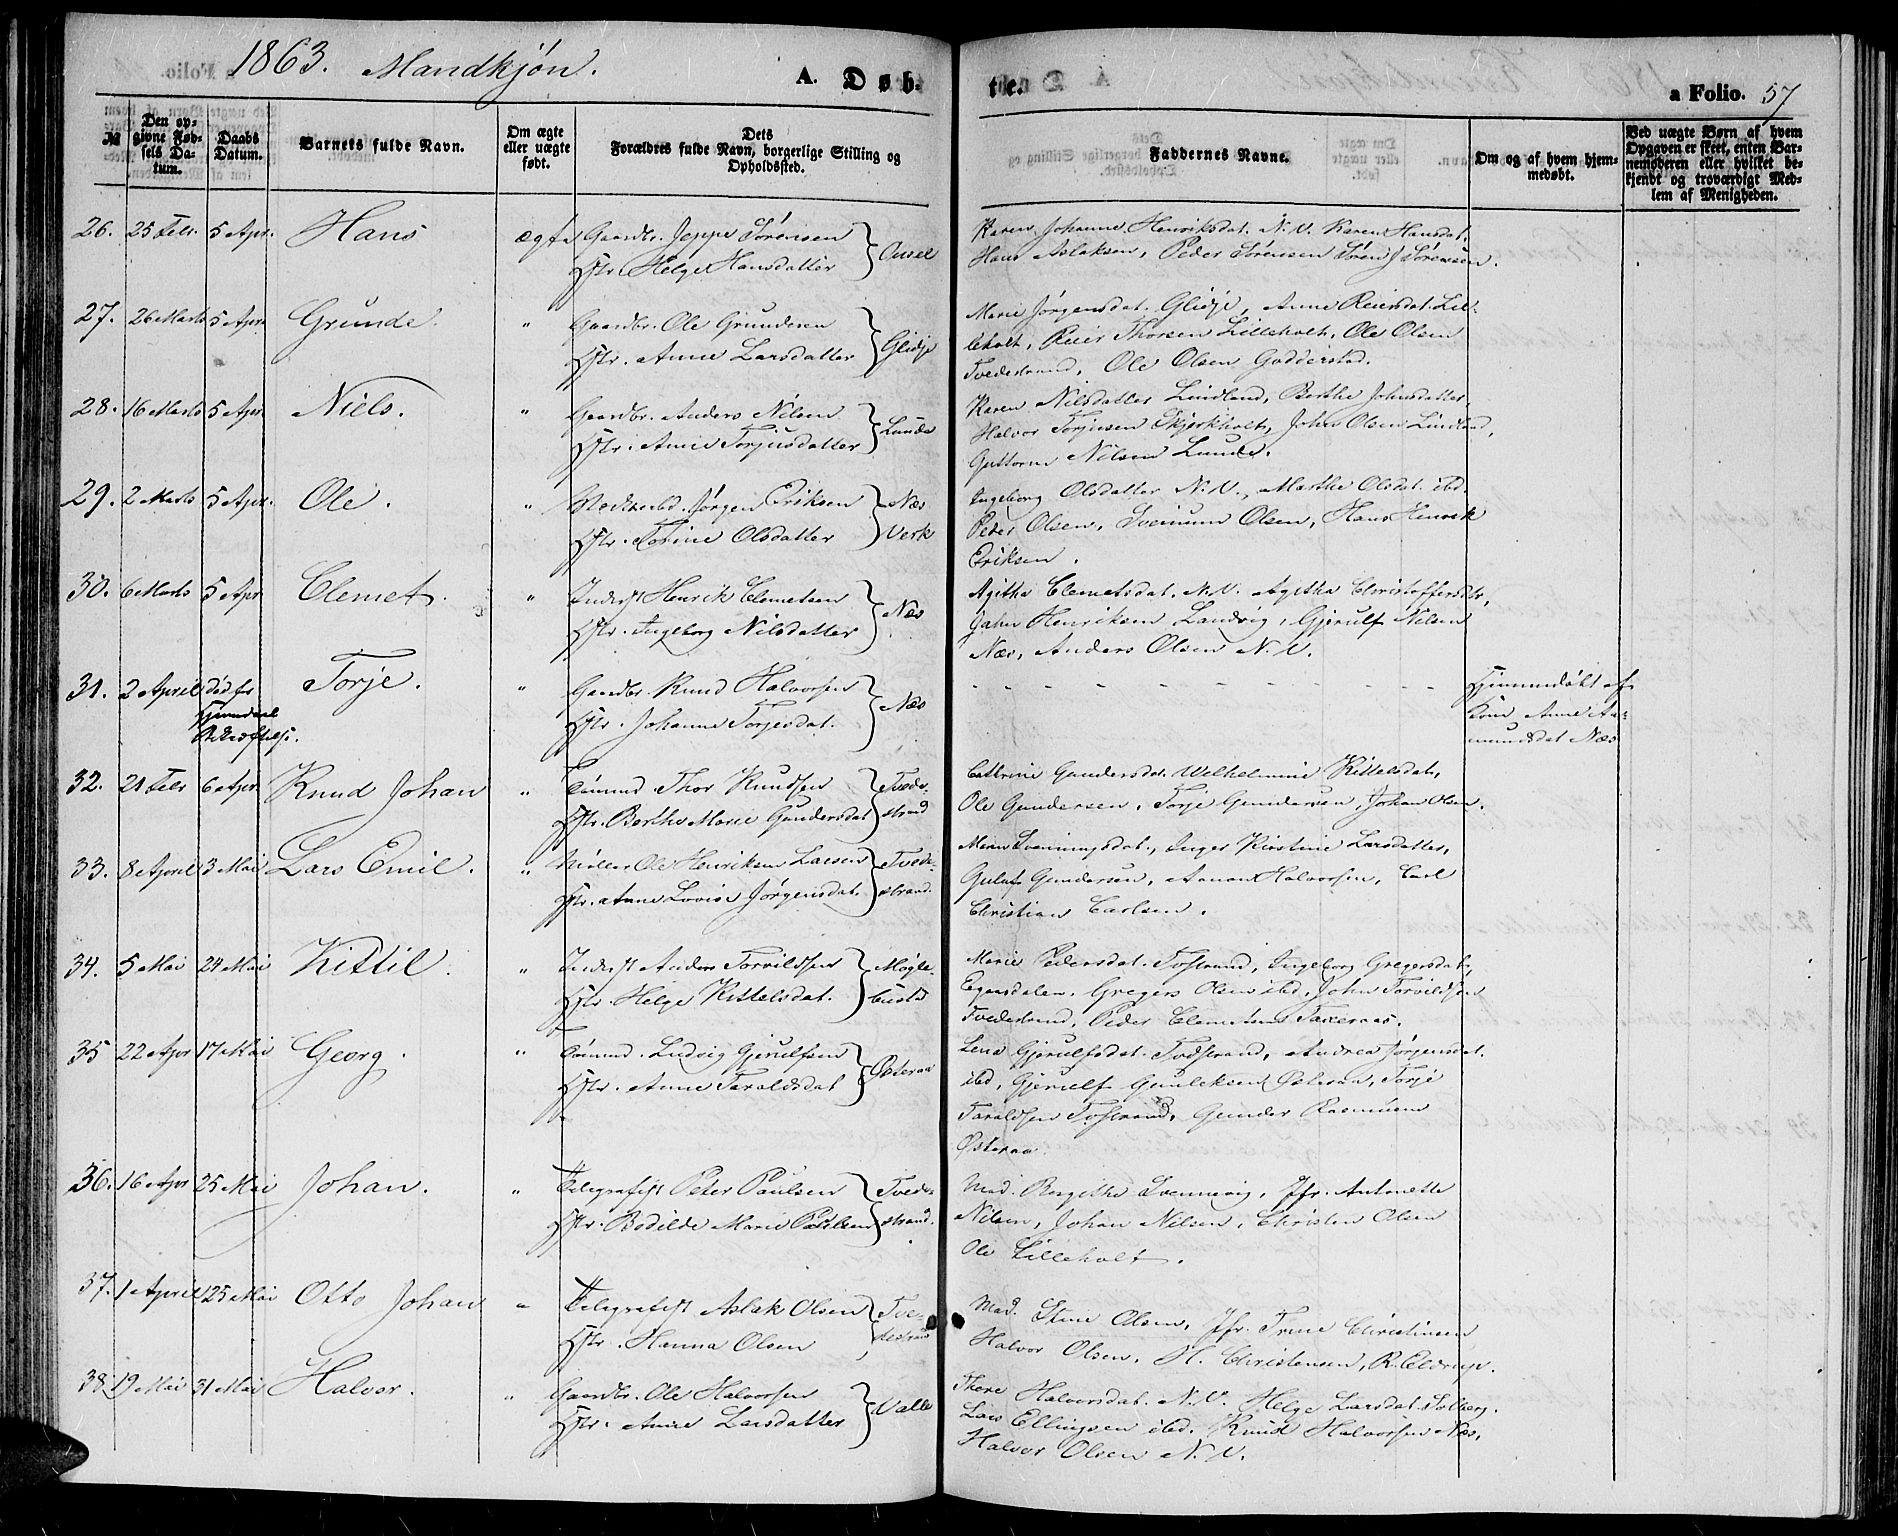 1863. Mandkjøn.
A. Døb-
te.
a Folio. 57
№
Den op-
givne Fød-
sels Da-
tum.
Daabs
Datum.
Barnets fulde Navn.
Om ægte
eller uægte
født.
Dets
Forældres fulde Navn, borgerlige Stilling og
Opholdssted.
Faddernes Navne.
Om og af hvem hjem-
medøbt.
Ved uægte Børn af hvem
Opgaven er skeet, enten Bar-
nemøderen eller hvilket be-
kjendt og troværdigt Med-
lem af Menigheden.
26. 25 Febr. 5 Apr. Hans ægte Gaardbr. Jeppe Sørensen
Hstr. Helge Hansdatter
Karen Johanne Henriksdat. N.V. Karen Hansdat.
Hans Aslaksen, Peder Sørensen Søren J Sørensen.
27. 26 Marts 5 Apr. Grunde. " Gaardbr. Ole Grundesen
Hstr. Anne Larsdatter Glidje
Marie Jørgensdat. Glidje, Anne Reiersdat. Lil-
leholt, Reier Thorsen Lilleholt, Ole Olsen
Tvedestrand, Ole Olsen Godderstad.
28. 16 Marts 5 Apr. Niels. " Gaardbr. Anders Nilsen
Hstr. Anne Torjusdatter Lunde
Karen Nilsdatter Lindland, Berthe Johnsdatter
Halvor Torjusen Skjerkholt, John Olsen Lindland,
Guttorm Nilsen Lunde.
29. 2 Marts 5 Apr. Ole. " Jørgen Eriksen Næs
Hstr. Torine Olsdatter Verk
Ingeborg Olsdatter N.V., Marthe Olsdat. ibd.
Peder Olsen, Svenum Olsen, Hans Henrik
Eriksen.
30. 6 Marts 5 Apr. Clemet. " Inderst Henrik Clemetsen
Hstr. Ingeborg Nilsdatter Næs
Agithe Clemetsdat. N.V. Agithe Christoffersdtr,
John Henriksen Landvig, Gjerulf Nilsen
Næs, Anders Olsen N.V.
31. 2 April død før Torje. " Gaardbr. Knud Halvorsen
Hstr. Johanne Torjesdat. Næs
Hjemmedøbt af
Kone Anne Aa-
mundsdat Næs
32. 21 Febr 6 Apr. Knud Johan " Tømmd. Thor Knudsen Tvede-
Hstr. Berthe Marie Gundersdat strand
Cathrine Gundersdat. Wilhelmine Kittelsdat,
Ole Gundersen, Torje Gundersen, Johan Olsen.
33. 8 April 3 Mai Lars Emil. " Møller Ole Henriksen Larsen Tvede-
Hstr. Anne Lovise Jørgensdat. strand.
Maren Svenningsdat., Inger Kirstine Larsdatter,
Gunersen, Aanon Halvorsen, Carl
Christian Carlsen.
34. 5 Mai 24 Mai Kittil. " Inderst Anders Torvildsen Møgle-
Hstr. Helge Kittelsdat. bustø
Marie Pedersdat. Tvedestrand, Ingeborg Gregersdat.,
Egaasdalen, Gregers Olsen ibd, John Torvildsen
Tvedestrand, Peder Clemetsen Taxeraas.
35 22 Apr 17 Mai Georg. " Tømmd. Ludvig Gjerulfsen
Hstr. Anne Taraldsdat Østeraa
Lena Gjerulfsdat. Tvedstrand, Andrea Jørgensdat.
ibd, Gjerulf Gunleksen Østeraa, Torje
Taraldsen Tvedstrand, Gunder Rasmusen
Østeraa.
36. 16 Apr 25 Mai Johan. " Telegrafist Peter Paulsen Tvede-
Hstr. Bodilde Marie Paulsen strand.
Mad. Bergithe Svennevig, Jfr. Antonette
Nilsen, Johan Nilsen, Christen Olsen
Ole Lilleholt.
37. 1 April 25 Mai Otto Johan " Telegrafist Aslak Olsen Tve-
Hstr. Hanna Olsen destrand
Mad. Stine Olsen, Jfr. Trine Christensen
Halvor Olsen, H. Christensen, R. Eldrup.
38. 19 Mai 31 Mai Halvor. " Gaardbr. Ole Halvorsen
Hstr. Anne Larsdatter Valle
Thore Halvorsdat. N.V. Helge Larsdat. Solberg.
Lars Ellingsen ibd. Knud Halvorsen Næs,
Halvor Olsen N.V.